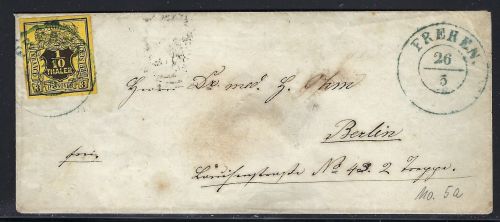 1/10
THALER
3 3
FREREN.
26
5
Herrn Dr. med. H. Ohm
Berlin
frei.
Louisenstraße No 43. 2 Treppe.
No. 5a